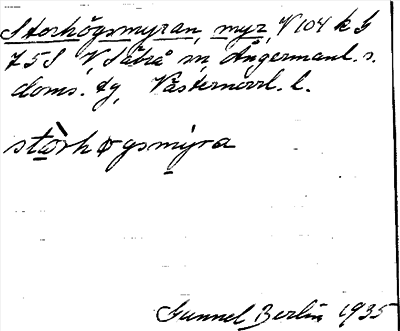 Storhögsmyran, myr, V 104 k b
75 S V, Säbrå sn, Ångermanl. s.
doms. tg, Västernorrl. l.
stòrhøgsmyra
Gunnel Berlin 1935